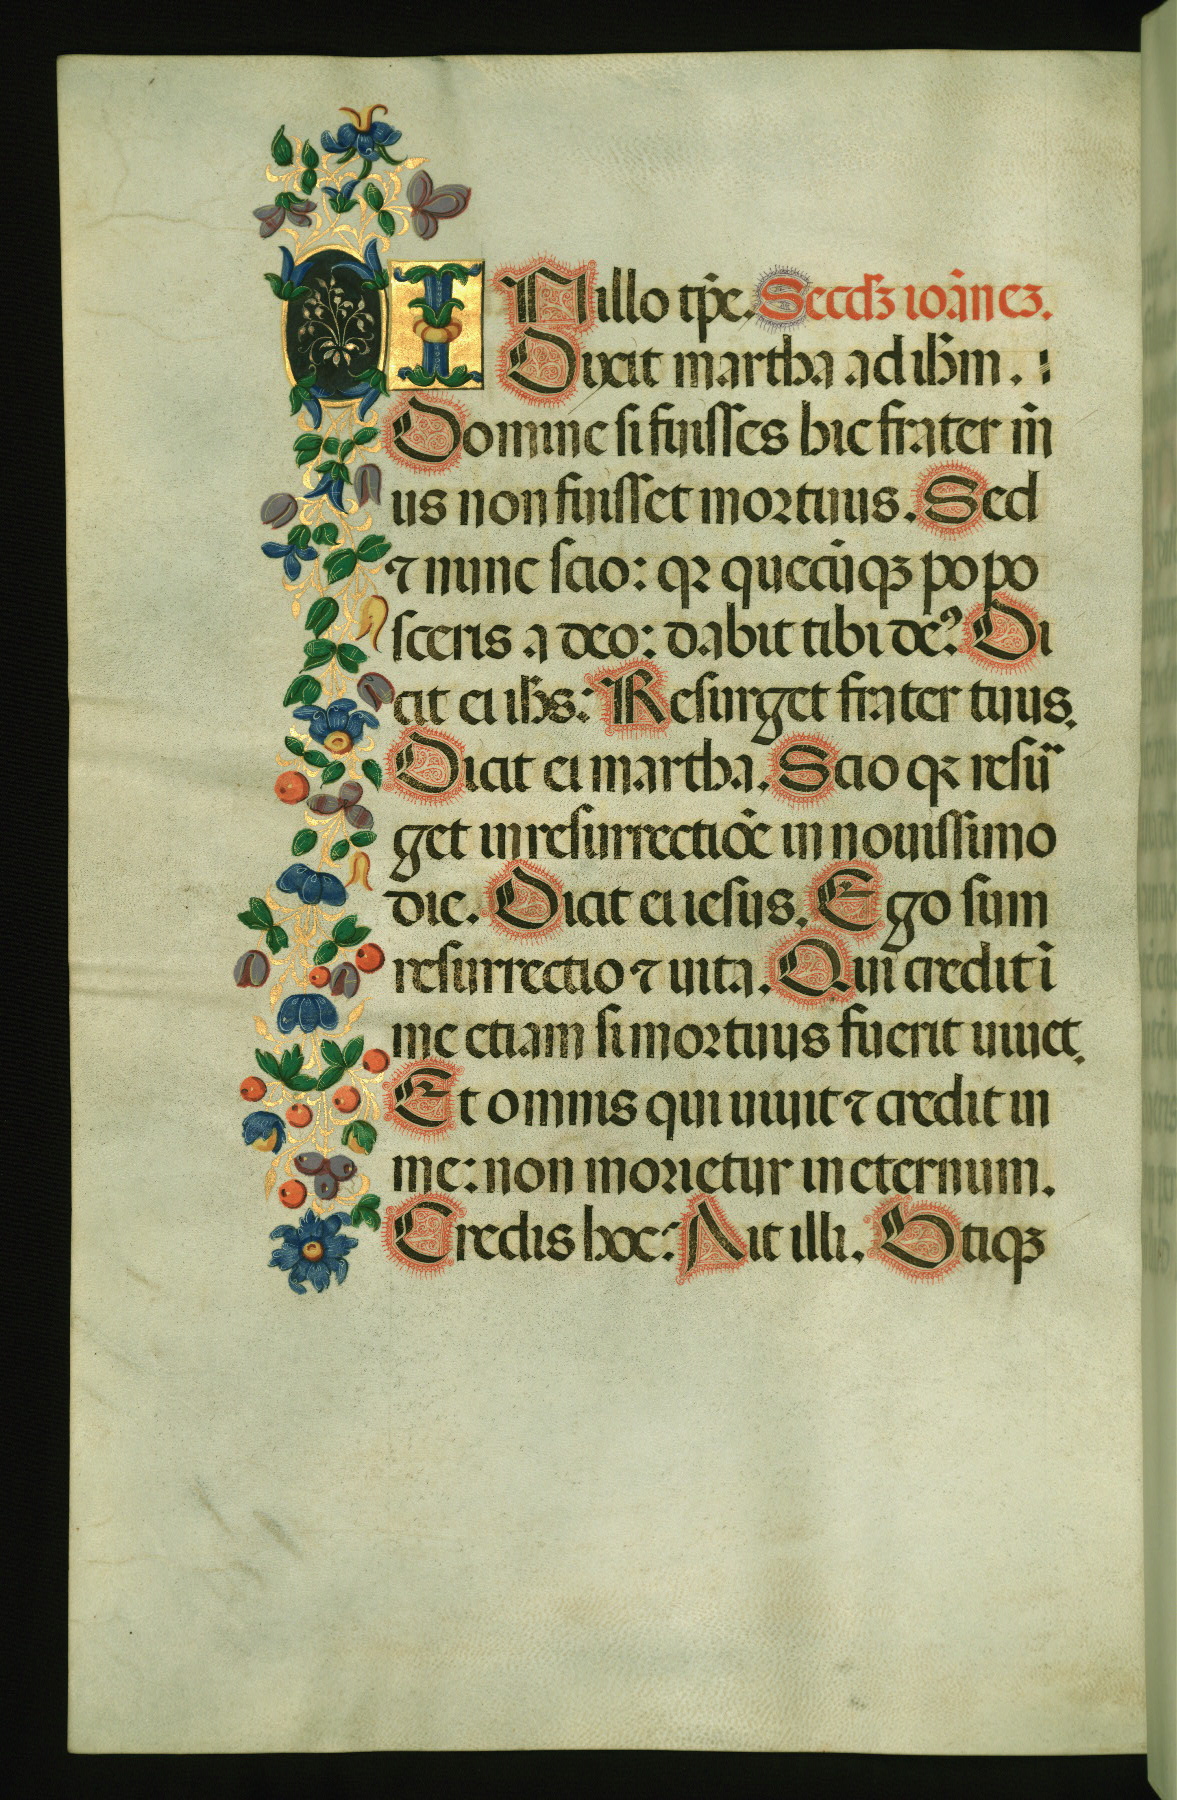 IN illo tp̄e. Secd̄ꝫ ioānez.
Dixit martha ad ih̄m. :
Domine si fuisses hic frater m̄
us non fuisset mortuus. Sed
⁊ nunc scio: qꝛ quecūqꝫ popo
sceris a deo: dabit tibi de⁹. Di
cit ei ih̄s: Resurget frater tuus.
Dicit ei martha. Scio qꝛ resur
get in resurrectiōe in nouissimo
die. Dicit ei iesus. Ego sum
resurrectio ⁊ uita. Qui credit ī
me etiam si mortuus fuerit uiuet.
Et omnis qui uiuit ⁊ credit in
me: non morietur in eternum.
Credis hoc: Ait illi. Utiqꝫ